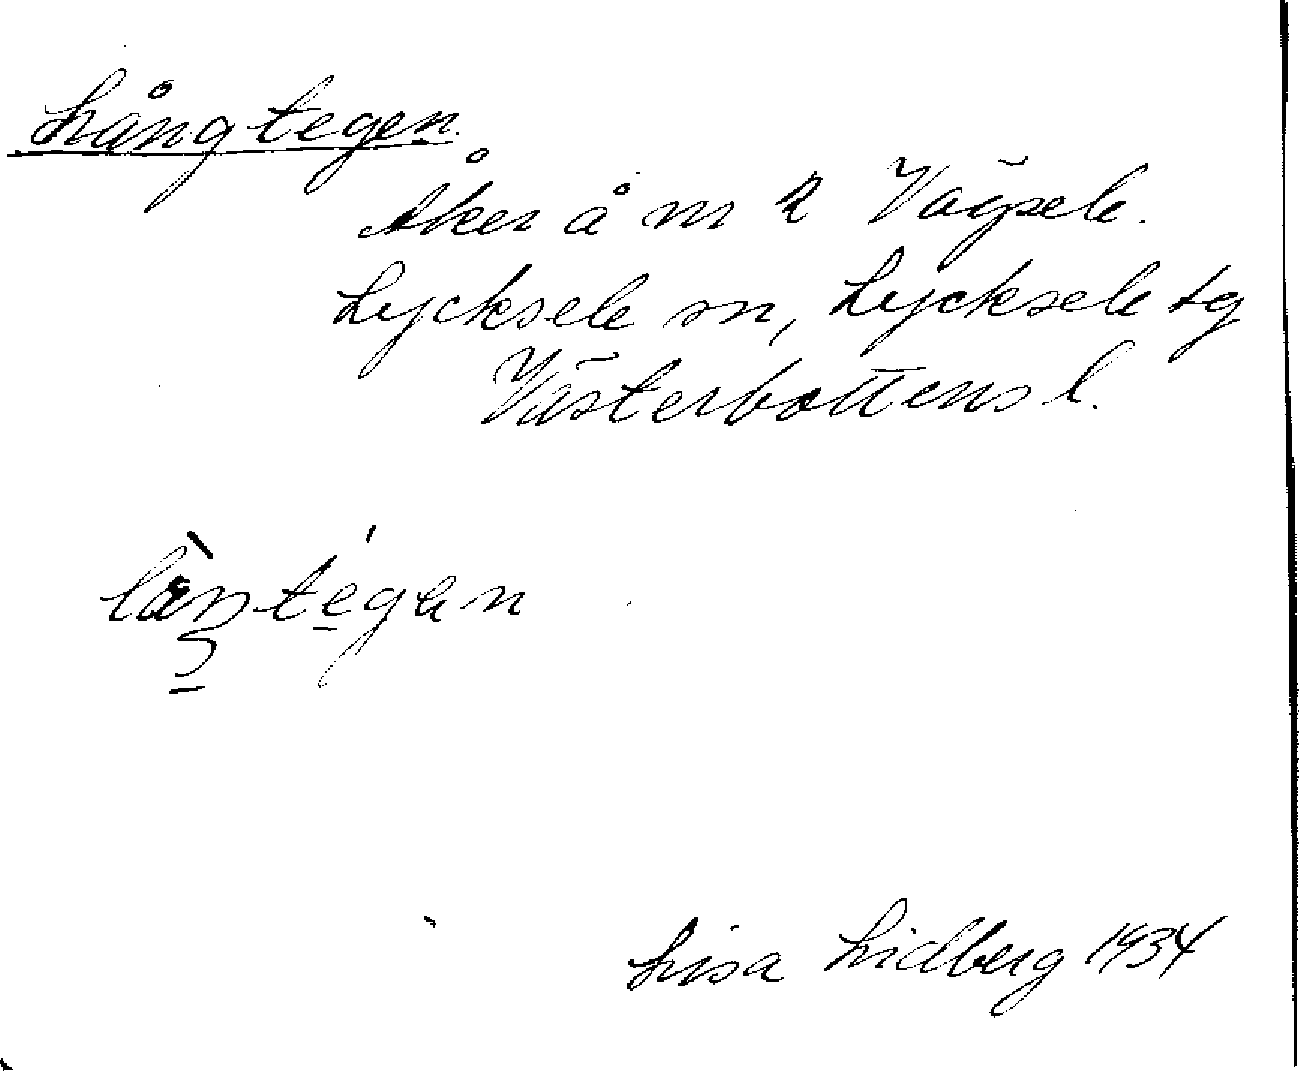 Långtegen.
Åker å nr 2 Vägsele.
Lycksele sn, Lycksele tg
Västerbottens l.
Lisa Lidberg 1934